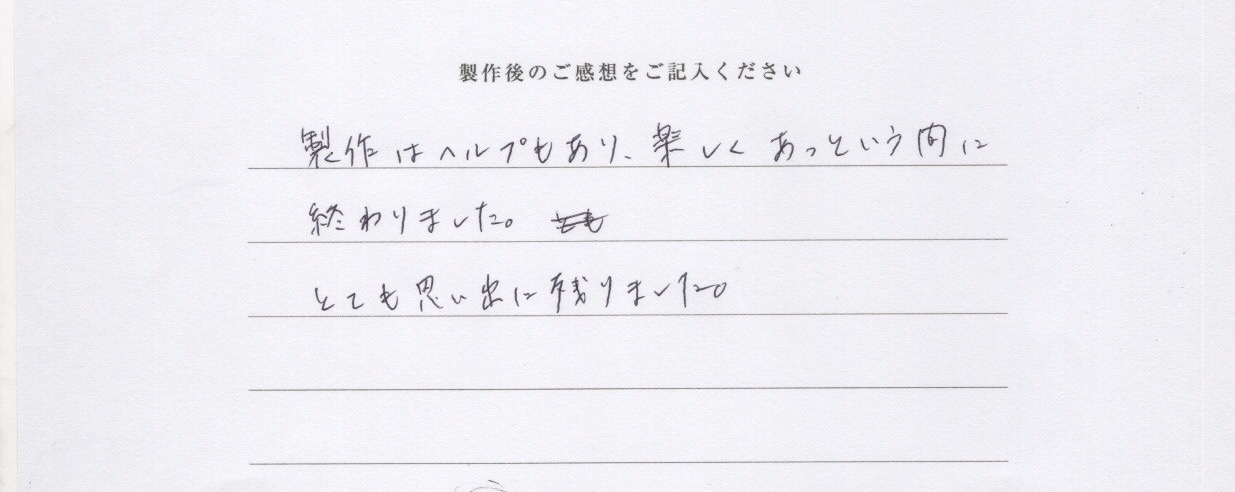 製作後のご感想をご記入ください
製作はヘルプもあり、楽しくあっという間に
終わりました。
とても思い出に残りました。